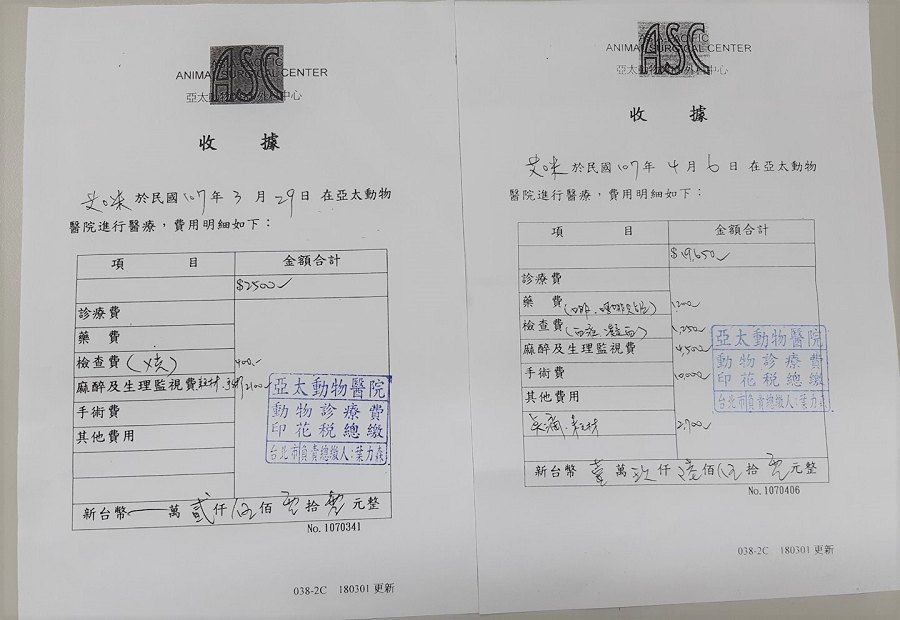 ASC
ANIMAL SURGICAL CENTER
收 據
艾咪 於民國 107 年 3 月 29 日 在亞太動物
醫院進行醫療，費用明細如下：
項 目 金額合計
$2500
診療費
藥 費
檢查費 400.-
麻醉及生理監視費 2100
手術費
其他費用
亞太動物醫院
動物診療費
印花稅總繳
台北市負責總繳人:葉力森
新台幣 萬 貳 仟 伍 佰 零 拾 零 元整
No. 1070341
038-2C 180301 更新
ASC
ANIMAL SURGICAL CENTER
收 據
艾咪 於民國 107 年 4 月 6 日 在亞太動物
醫院進行醫療，費用明細如下：
項 目 金額合計
$19,650
診療費
藥 費 1200
檢查費 1,250
麻醉及生理監視費 4,500
手術費 10,000
其他費用
2,700
亞太動物醫院
動物診療費
印花稅總繳
台北市負責總繳人:葉力森
新台幣 壹 萬 玖 仟 陸 佰 伍 拾 零 元整
No. 1070406
038-2C 180301 更新